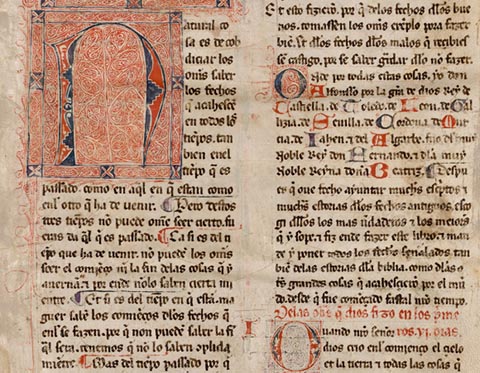 Natural co
sa es de cob
diciar los
om̃s saber
los fechos
q̃ acahesçẽ
en todos los
tiẽpos. tan
bien en el
tiẽpo q̃ es
passado. como en aq̃l en q̃ estan como
enl otro q̃ ha de uenir. Pero destos
tres tiẽpos no puede om̃e seer cierto. fu
eras da q̃l q̃ es passado. Ca si es del ti
ẽpo que ha de uenir. no puedẽ los om̃s
seer el comieço ni la fin delas cosas q̃ y
auernã. ⁊ por ende nõlo saben cierta mi
entre. Et si es del tiẽpo en q̃ está. ma
guer sabẽ los comieços dlos fechos q̃
enl se fazen. por q̃ non puedẽ saber la fĩ
q̃l sera. tenemos q̃ no lo saben cõplida
miẽtre. Mas del tiẽpo passado por q̃
Et esto fiziero. por q̃ delos fechos dlos bue
nos. tomassen los om̃s exẽplo pora fazer
biẽ. ⁊ dlos fechos dlos malos q̃ recibies
se castigo. por se saber gũdar dlo no fazer.
Onde por todas estas cosas. yo don
Alfonsso por la gr̃a de dios Rey de
Castiella. de Toledo. de Leon. de Gal
lizia. de Seuilla. de Cordoua. de Mur
cia. de Iahen. ⁊ del Algarbe. fijo del muy
Noble Rey don Ferrando. ⁊ dla muy
Noble Reyna doña Beatriz. Despu
es q̃ oue fecho ayuntar muchos escriptos ⁊
muchas estorias dlos fechos antiguos. esco
gi dellos los mas ũdaderos ⁊ los meiores
q̃ y sope. ⁊ fiz ende fazer este libro. ⁊ man
de y poner todos los fechos señalados. tan
biẽ delas estorias dla biblia. como dlas ot̃s
grãdes cosas q̃ acahesçierõ por el mũ
do. desde q̃ fue començado fastal nr̃o tiempo.
Delas obr̃ q̃ dios fizo en los pme
I Quando nr̃o señor ros. vi. dias.
dios crio enl comienço el cielo
et la tierra ⁊ todas las cosas q̃